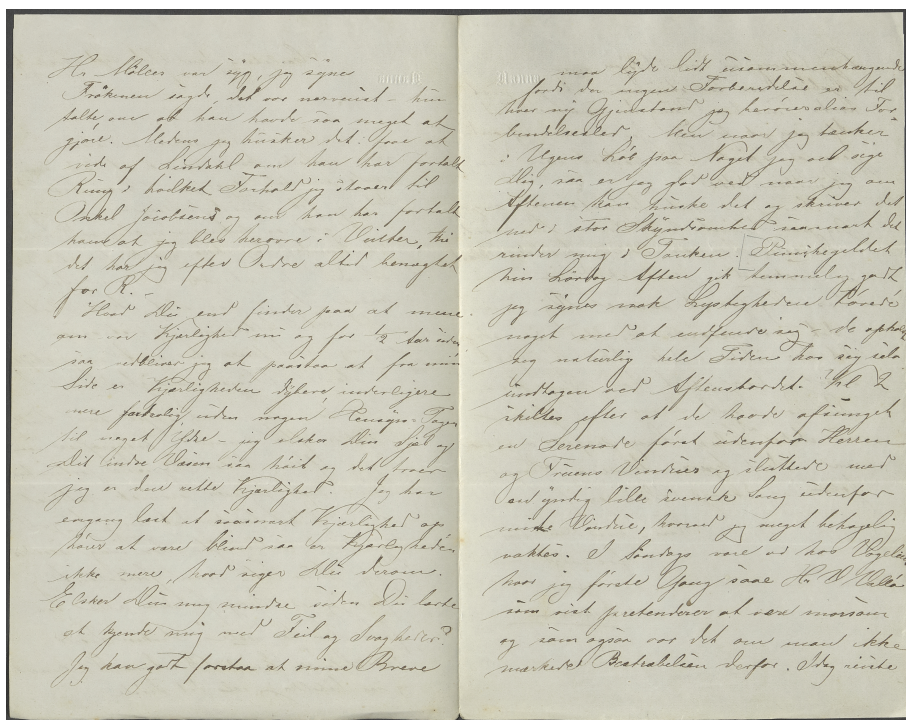 Hr. Möller var syg, jeg
Frökenen sagde, det var nervøst – hun
talte om at han havde saa meget at
gjöre. Medens jeg husker det: faae at
vide af Lindahl om han har fortalt
Ring i hvilket Forhold jeg staaer til
Onkel Jacobsens og om han har fortalt
ham at jeg blev herovre i Vinter, thi
det har jeg efter Ordre altid benægtet
for R. –
Hvad Du end finder paa at mene
om vor Kjærlighed nu og for ½ Aar siden
saa vedbliver jeg at paastaa at fra min
Side er Kjærligheden dybere, inderligere
mere uden nogen Hensyn-Tagen
til noget Ydre – jeg elsker Din Sjæl og
Dit indre Væsen saa høit og det troer
jeg er den rette Kjærlighed. Jeg har
engang læst at saasnart Kjærlighed op-
hører at være blind saa er Kjærligheden
ikke mere, hvad siger Du derom.
Elsker Du mig mindre siden Du lærte
at kjende mig med Feil og Svagheder?
Jeg kan godt forstaa at mine Breve
maa lyde lidt usammenhængende
fordi der ingen Forberedelse er til
hver ny Gjenstand jeg berører alias For-
bindelsesled. Men naar jeg tænker
i Ugens Løb paa Noget jeg vil sige
Dig, saa er jeg glad ved naar jeg om
Aftenen kan huske det og skriver det
ned i stor Skyndsomhed saasnart det
rinder mig i Tanken. Punschegildet
hin Lördag Aften gik temmelig godt
jeg synes nok Lystigheden
noget med at indfinde sig – de opholdt
sig naturlig hele Tiden hos sig selv
undtagen ved Aftensbordet. Kl 2
skiltes efter at de havde afsunget
en Serenade først udenfor Herren
og Fruens Vinduer og sluttede med
en yndig lille svensk Sang udenfor
mine Vinduer, hvorved jeg meget behagelig
vaktes. I Søndags vare vi hos
hvor jeg første Gang saae Hr.
som vist prætenderer at være morsom
og som ogsaa var det om man ikke
mærkede Bestræbelsen derfor. Idag reiste